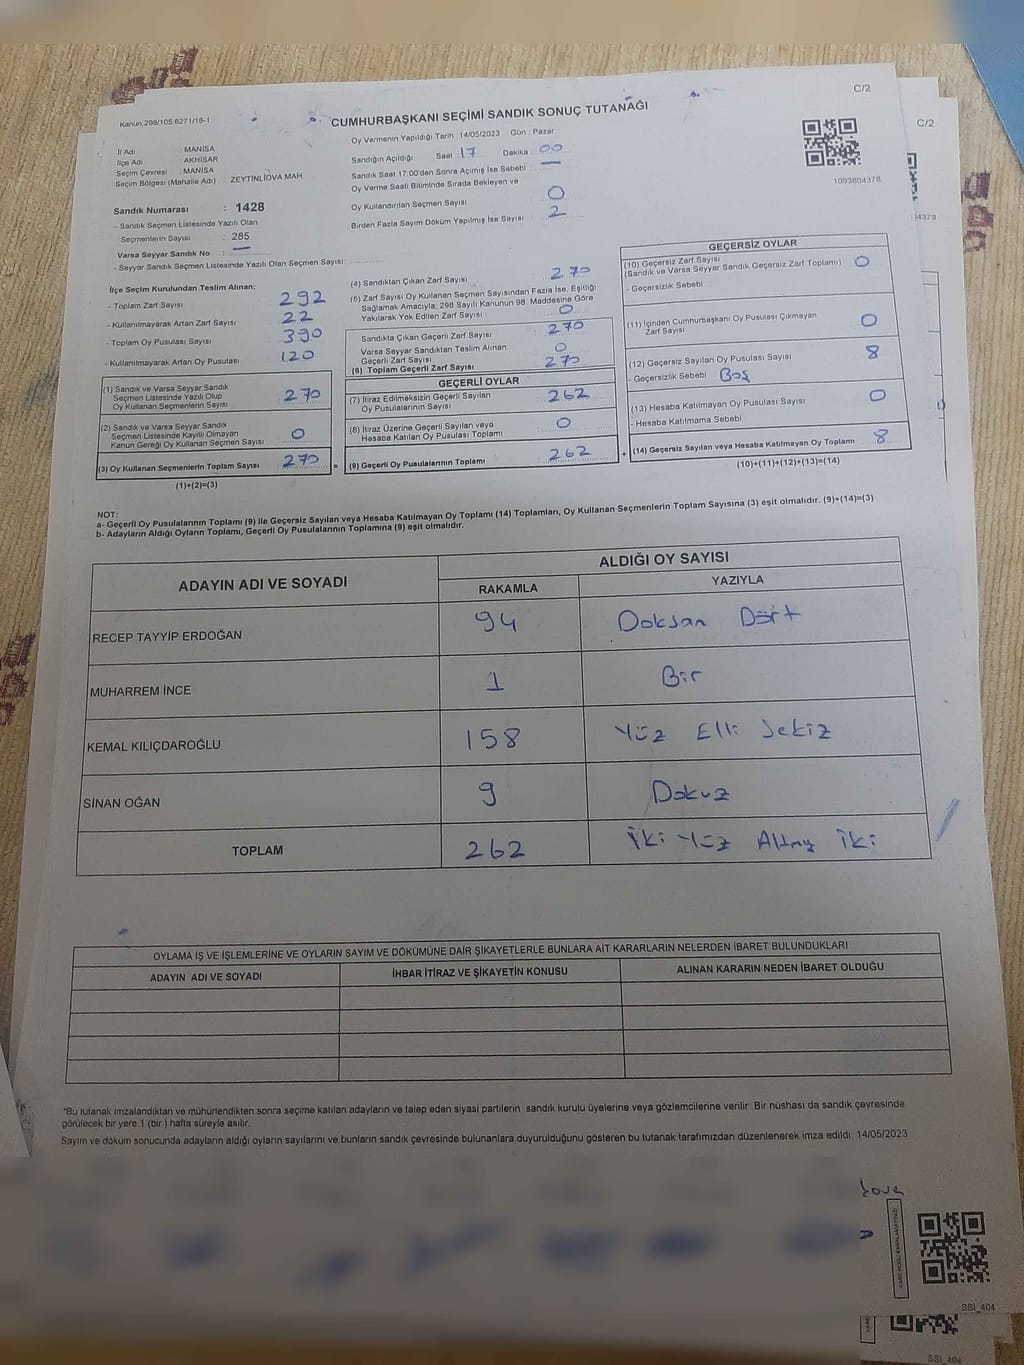 C/2
Kanun:298/105.6271/18-1
CUMHURBAŞKANI SEÇİMİ SANDIK SONUÇ TUTANAĞI
C/2
İl Adı : MANİSA
İlçe Adı : AKHİSAR
Seçim Çevresi : MANİSA
Seçim Bölgesi (Mahalle Adı) : ZEYTİNLİOVA MAH.
Oy Vermenin Yapıldığı Tarih : 14/05/2023 Gün : Pazar
Sandığın Açıldığı Saat 17 Dakika : 00
Sandık Saat 17:00'den Sonra Açılmış İse Sebebi : —
Oy Verme Saati Bitiminde Sırada Bekleyen ve
Oy Kullandırılan Seçmen Sayısı 0
Birden Fazla Sayım Döküm Yapılmış İse Sayısı 2
1093804378
4379
Sandık Numarası : 1428
- Sandık Seçmen Listesinde Yazılı Olan
Seçmenlerin Sayısı : 285
Varsa Seyyar Sandık No : —
- Seyyar Sandık Seçmen Listesinde Yazılı Olan Seçmen Sayısı:
İlçe Seçim Kurulundan Teslim Alınan;
- Toplam Zarf Sayısı 292
- Kullanılmayarak Artan Zarf Sayısı 22
- Toplam Oy Pusulası Sayısı 390
- Kullanılmayarak Artan Oy Pusulası 120
(1) Sandık ve Varsa Seyyar Sandık
Seçmen Listesinde Yazılı Olup
Oy Kullanan Seçmenlerin Sayısı 270
(2) Sandık ve Varsa Seyyar Sandık
Seçmen Listesinde Kayıtlı Olmayan
Kanun Gereği Oy Kullanan Seçmen Sayısı 0
(3) Oy Kullanan Seçmenlerin Toplam Sayısı 270
(1)+(2)=(3)
(4) Sandıktan Çıkan Zarf Sayısı 270
(5) Zarf Sayısı Oy Kullanan Seçmen Sayısından Fazla İse, Eşitliği
Sağlamak Amacıyla; 298 Sayılı Kanunun 98. Maddesine Göre
Yakılarak Yok Edilen Zarf Sayısı : 0
Sandıkta Çıkan Geçerli Zarf Sayısı 270
Varsa Seyyar Sandıktan Teslim Alınan
Geçerli Zarf Sayısı 0
(6) Toplam Geçerli Zarf Sayısı 270
GEÇERLİ OYLAR
(7) İtiraz Edilmeksizin Geçerli Sayılan
Oy Pusulalarının Sayısı 262
(8) İtiraz Üzerine Geçerli Sayılan veya
Hesaba Katılan Oy Pusulası Toplamı 0
= (9) Geçerli Oy Pusulalarının Toplamı 262
GEÇERSİZ OYLAR
(10) Geçersiz Zarf Sayısı
(Sandık ve Varsa Seyyar Sandık Geçersiz Zarf Toplamı) 0
- Geçersizlik Sebebi
(11) İçinden Cumhurbaşkanı Oy Pusulası Çıkmayan
Zarf Sayısı 0
(12) Geçersiz Sayılan Oy Pusulası Sayısı 8
- Geçersizlik Sebebi Boş
(13) Hesaba Katılmayan Oy Pusulası Sayısı 0
- Hesaba Katılmama Sebebi
+ (14) Geçersiz Sayılan veya Hesaba Katılmayan Oy Toplamı 8
(10)+(11)+(12)+(13)=(14)
NOT:
a- Geçerli Oy Pusulalarının Toplamı (9) ile Geçersiz Sayılan veya Hesaba Katılmayan Oy Toplamı (14) Toplamları, Oy Kullanan Seçmenlerin Toplam Sayısına (3) eşit olmalıdır. (9)+(14)=(3)
b- Adayların Aldığı Oyların Toplamı, Geçerli Oy Pusulalarının Toplamına (9) eşit olmalıdır.
ADAYIN ADI VE SOYADI
ALDIĞI OY SAYISI
RAKAMLA YAZIYLA
RECEP TAYYİP ERDOĞAN 94 Doksan Dört
MUHARREM İNCE 1 Bir
KEMAL KILIÇDAROĞLU 158 Yüz Elli Sekiz
SİNAN OĞAN 9 Dokuz
TOPLAM 262 İki Yüz Altmış İki
OYLAMA İŞ VE İŞLEMLERİNE VE OYLARIN SAYIM VE DÖKÜMÜNE DAİR ŞİKAYETLERLE BUNLARA AİT KARARLARIN NELERDEN İBARET BULUNDUKLARI
ADAYIN ADI VE SOYADI İHBAR İTİRAZ VE ŞİKAYETİN KONUSU ALINAN KARARIN NEDEN İBARET OLDUĞU
*Bu tutanak imzalandıktan ve mühürlendikten sonra seçime katılan adayların ve talep eden siyasi partilerin sandık kurulu üyelerine veya gözlemcilerine verilir. Bir nüshası da sandık çevresinde
görülecek bir yere 1 (bir) hafta süreyle asılır.
Sayım ve döküm sonucunda adayların aldığı oyların sayılarını ve bunların sandık çevresinde bulunanlara duyurulduğunu gösteren bu tutanak tarafımızdan düzenlenerek imza edildi. 14/05/2023
SSİ_404
SSİ_404